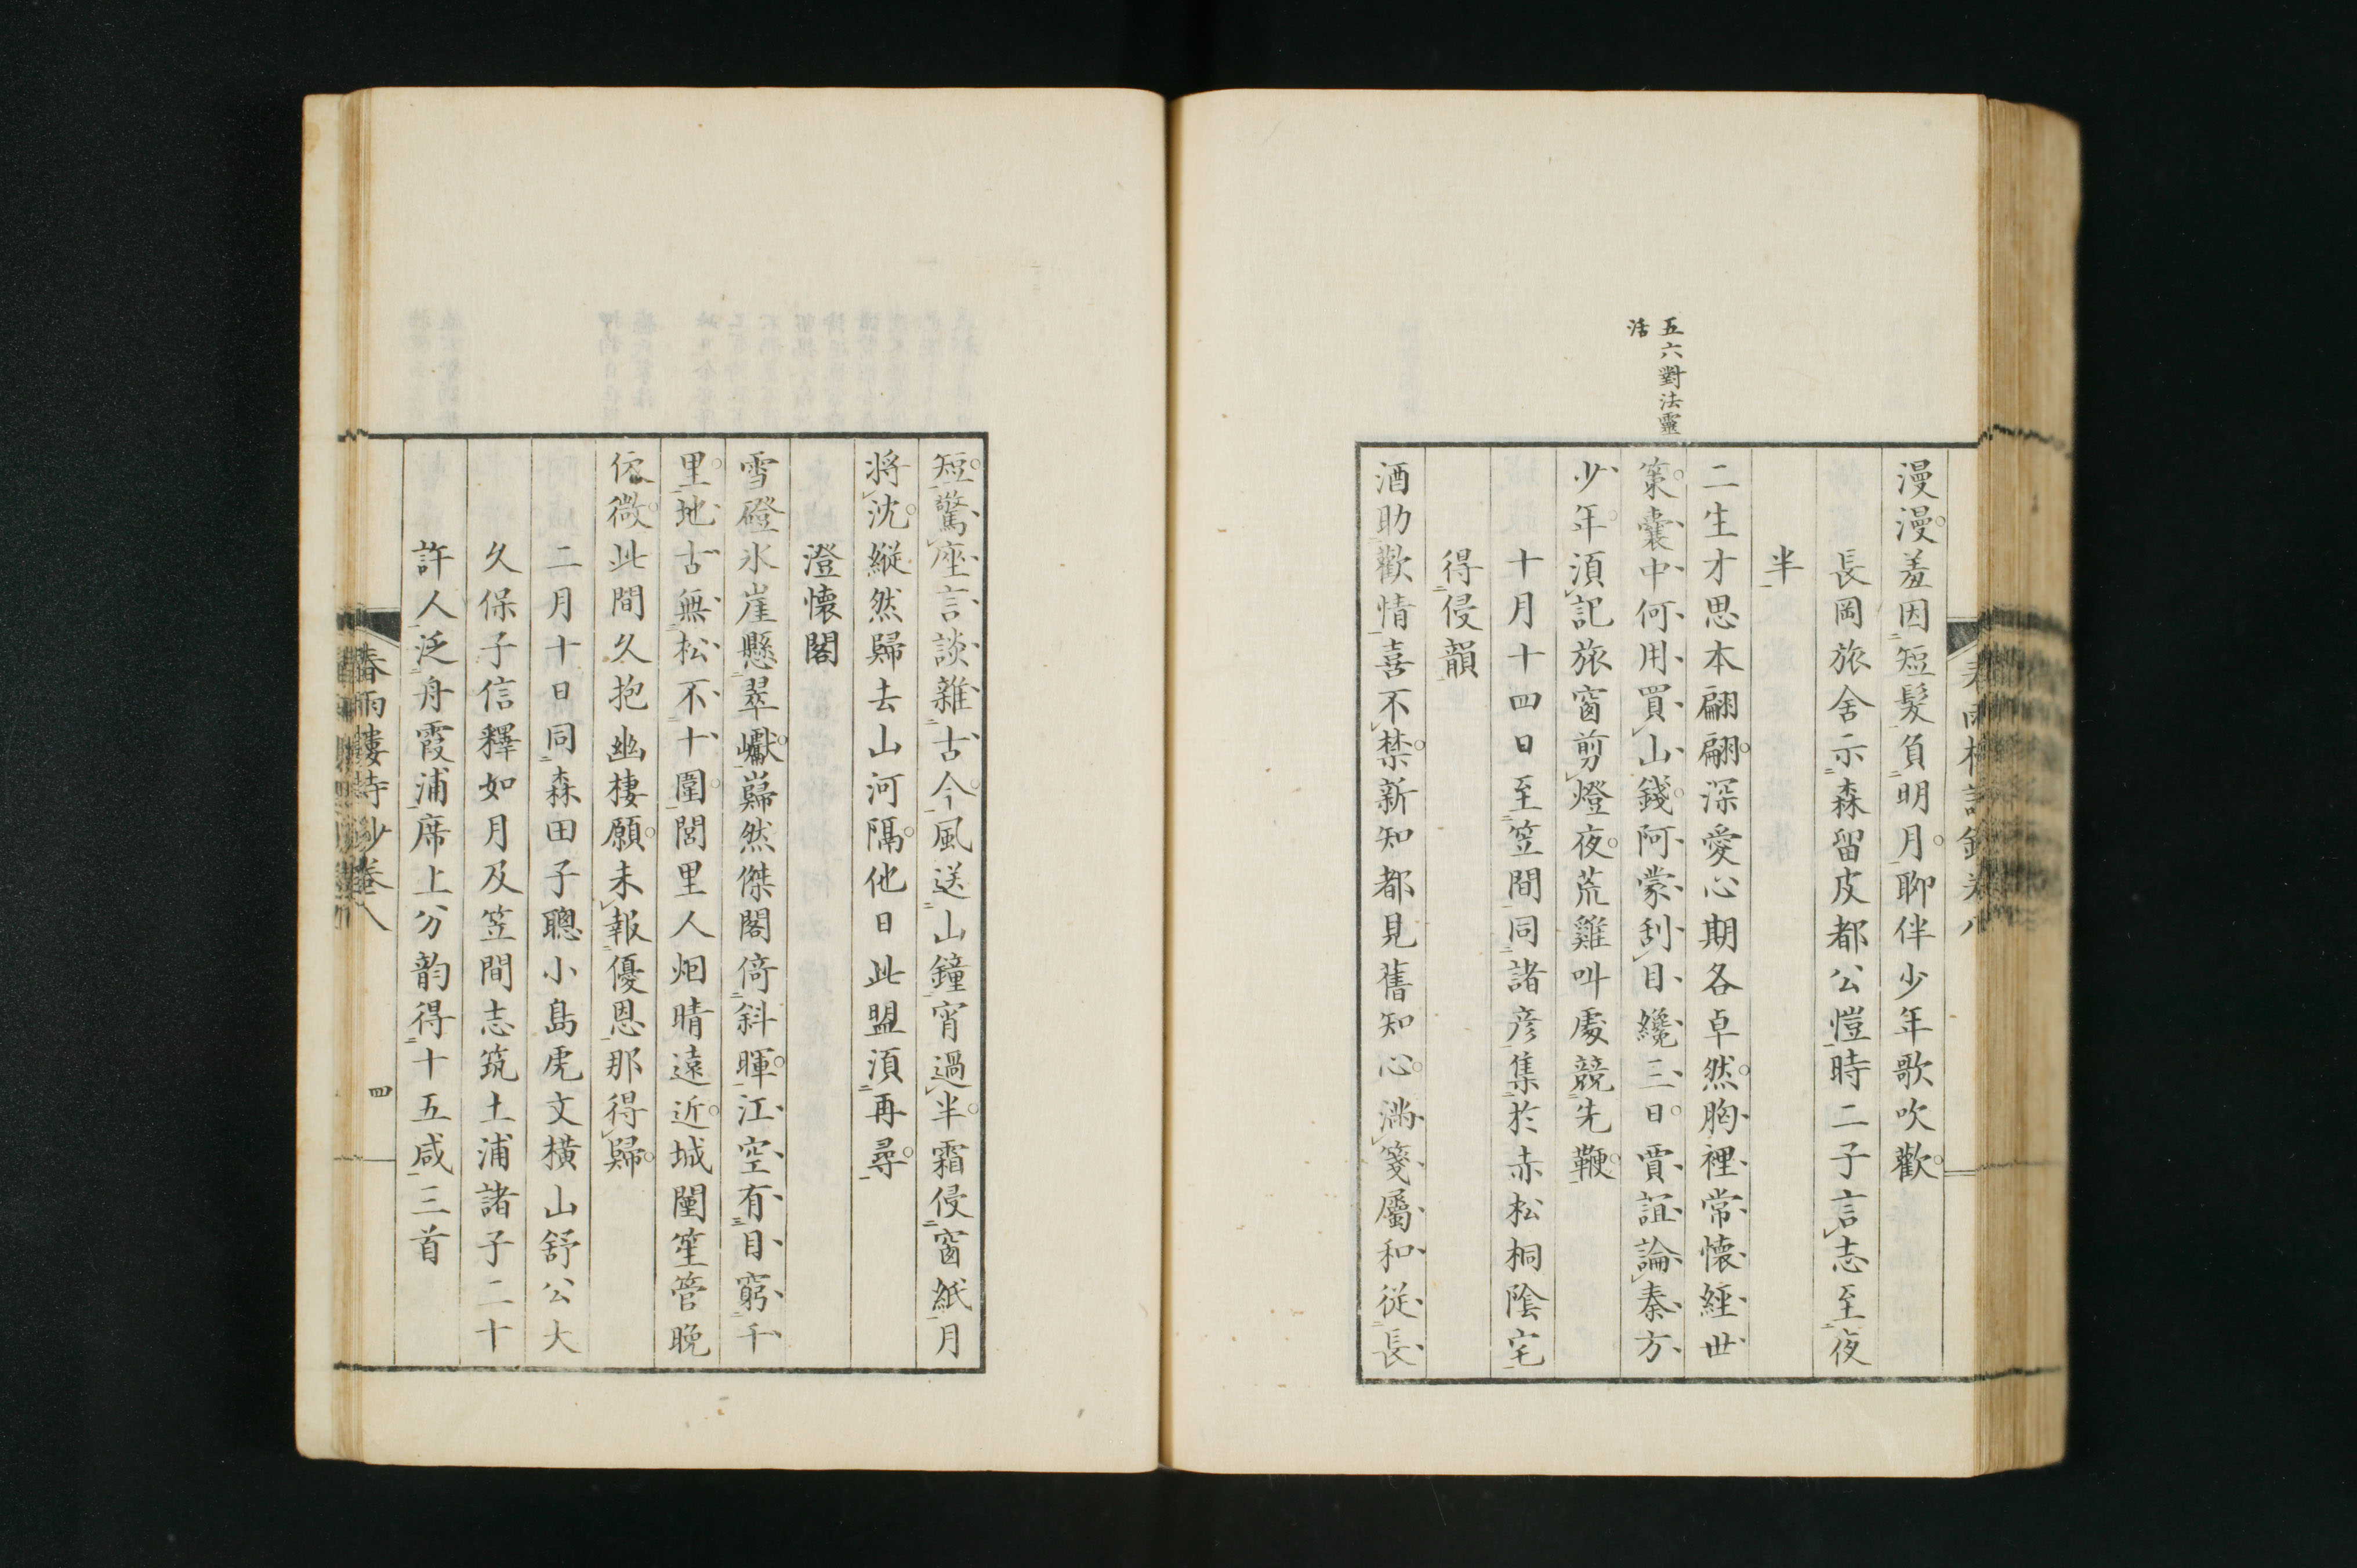 漫漫羞因短髮負明月聊伴少年歌吹歡
長岡旅舍示森留皮都公愷時二子言志至夜
半
二生才思本翩翩深愛心期各卓然胸裡常懷經世
策囊中何用買山錢阿蒙刮目纔三日賈誼論秦方
少年須記旅窗剪燈夜荒雞叫處競先鞭
五六對法靈
活
十月十四日至笠間同諸彦集於赤松桐陰宅
得侵韻
酒助歡情喜不禁新知都見舊知心滿箋屬和從長
短驚座言談雜古今風送山鐘宵過半霜侵窗紙月
將沈縱然歸去山河隔他日此盟須再尋
澄懷閣
雪磴氷崖懸翠巘巋然傑閣倚斜暉江空有目窮千
里地古無松不十圍閭里人烟晴遠近城闉笙管晚
依微此間久抱幽棲願未報優恩那得歸
二月十日同森田子聰小島虎文橫山舒公大
久保子信釋如月及笠間志筑土浦諸子二十
許人泛舟霞浦席上分韵得十五咸三首
春雨樓詩鈔卷八
四